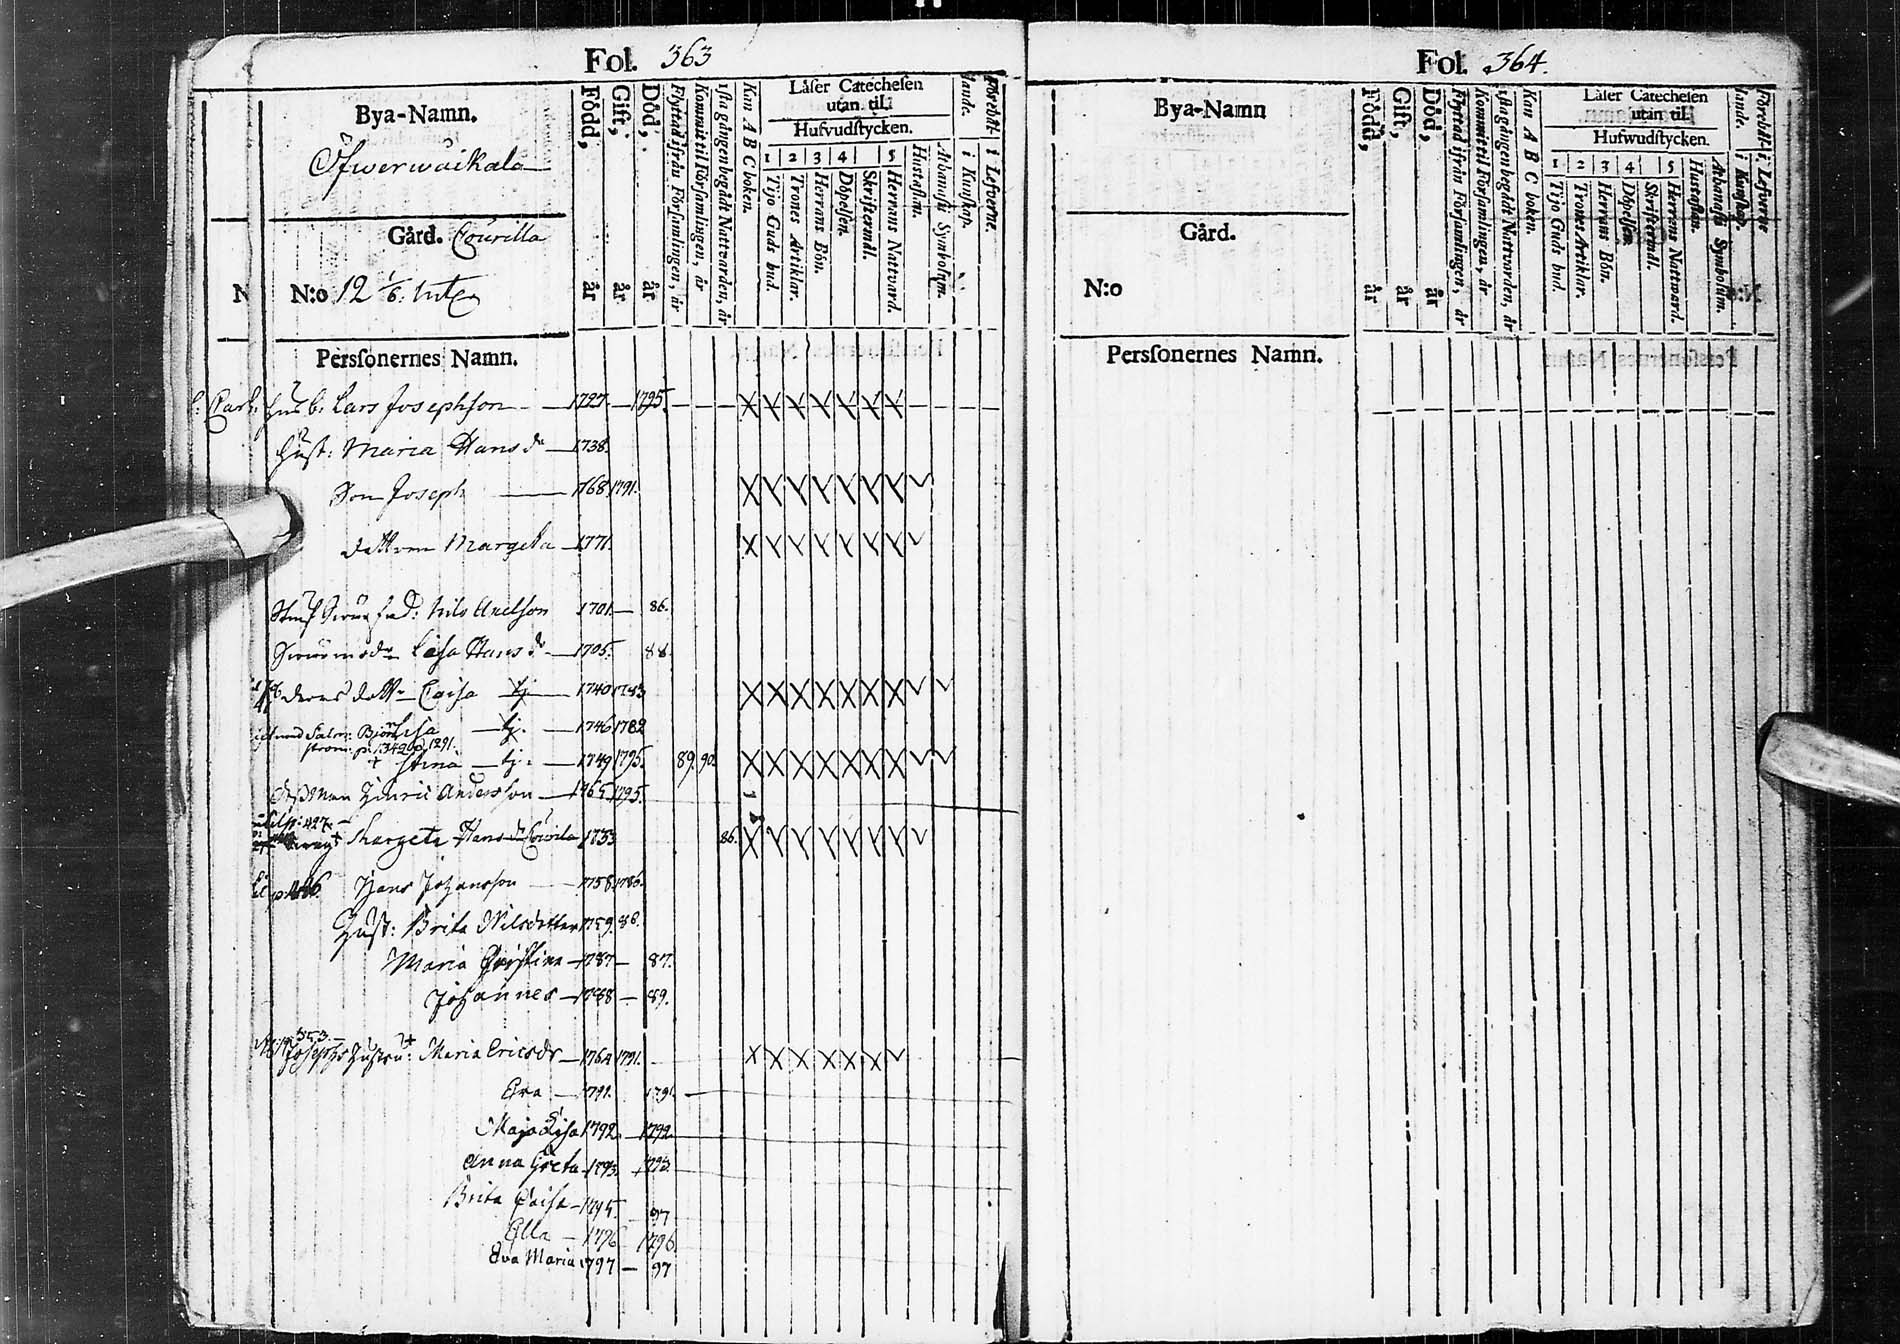 Fol. 363
Bya-Namn.
Öfwerwäikala
Gård. Courilla
N:o 12 1/6
Född, år
Gift, år
Död, år
Flyttad ifrån Församlingen, år
Kommit til Församlingen, år
gången begådt Nattvarden, år
Kan A B C boken.
Läser Catechesen
utan til.
Hufvudstycken.
1 2 3 4 5
Tijo Guds bud.
Trones Artiklar.
Herrans Bön.
Döpelsen.
Skriftermål.
Herrans Nattvard.
Hustaflan.
Athanasii Symbolum.
i Kunskap.
i Lefverne.
Personernes Namn.
Husb. Lars Josephson 1727. 1795.
Hust: Maria Hans dr 1738.
Son Joseph 1768. 1791.
dottren Margeta 1771.
fad: Nils 1701. 86.
Lisa Hans dr 1705. 88.
Caisa tj 1740 1783
Lisa tj. 1746 1782
+ Stina tj. 1749 1795. 89. 90.
Hinric Andersson 1765 1795.
Margeta Hans dr Courila 1733 86.
Hans Johansson 1758. 1786.
Hust: Brita Nilsdotter 1759. 86.
Maria Christina 1787 87.
Johannes 1788 89.
353
Josephs hustru: Maria Ericsdr 1764 1791.
Eva 1791. 1791.
Maja Lisa 1792. 1792.
Anna Greta 1793. 1793.
Brita Caisa 1795. 97
Ella 1796 1796.
Eva Maria 1797 97
Fol. 364.
Bya-Namn
Gård.
N:o
Född, år
Gift, år
Död, år
Flyttad ifrån Församlingen, år
Kommit til Församlingen, år
gången begådt Nattvarden, år
Kan A B C boken.
Läser Catechesen
utan til.
Hufwudstycken.
1 2 3 4 5
Tijo Guds bud.
Trones Artiklar.
Herrans Bön.
Döpelsen.
Skriftermål.
Herrans Nattward.
Hustaflan.
Athanasii Symbolum.
i Kunskap.
i Lefverne
Personernes Namn.